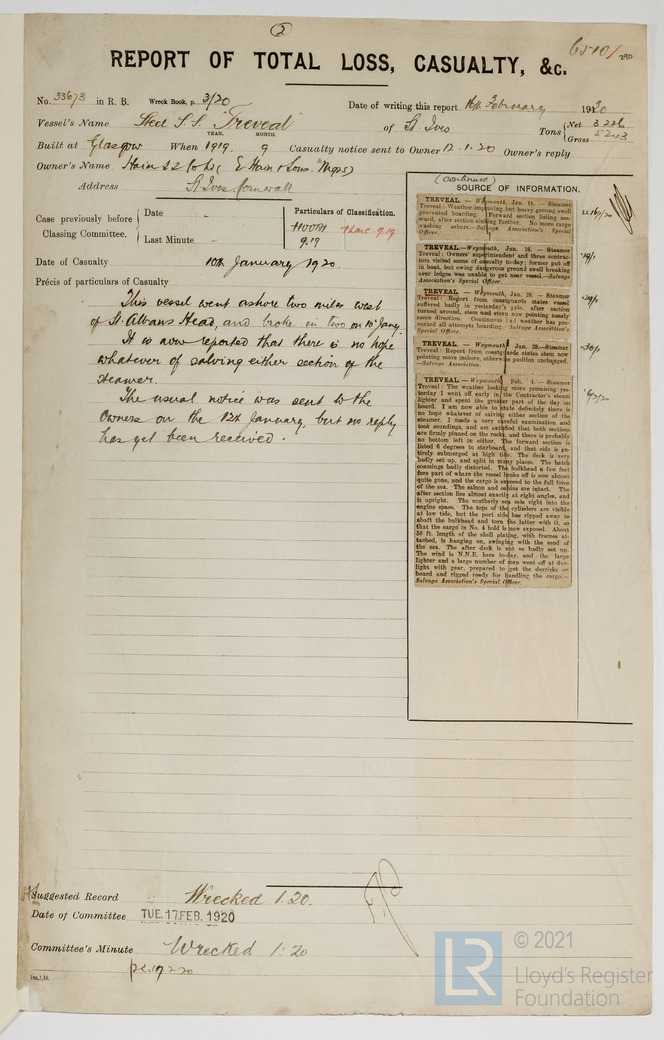 (2)
REPORT OF TOTAL LOSS, CASUALTY, &c.
No. 33673 in R. B. Wreck Book, p. 3/20
Date of writing this report 16th February 1920
Vessel's Name Steel S.S. Treveal of St. Ives
Tons { Net 3226
Gross 5243
YEAR. MONTH.
Built at Glasgow When 1919. 9 Casualty notice sent to Owner 12.1.20 Owner's reply
Owner's Name Hain S.S. Co Ltd (E. Hain & Sons. Mgrs)
Address St Ives Cornwall
Case previously before Classing Committee. { Date —
Last Minute —
Particulars of Classification.
+100A1
9.19
+LMC 9.19
Date of Casualty 10th January 1920.
Précis of particulars of Casualty
This vessel went ashore two miles west
of St. Albans Head, and broke in two on 15 Jany.
It is now reported that there is no hope
whatever of salving either section of the
steamer.
The usual notice was sent to the
Owners on the 12th January, but no reply
has yet been received.
(Continued)
SOURCE OF INFORMATION.
TREVEAL.—Weymouth, Jan. 14.—Steamer
Treveal: Weather improving but heavy ground swell
prevented boarding. Forward section listing sea-
ward, after section sinking further. No more cargo
washing ashore.—Salvage Association's Special
Officer.
TREVEAL.—Weymouth, Jan. 16.—Steamer
Treveal: Owners' superintendent and three contrac-
tors visited scene of casualty to-day; former put off
in boat, but owing dangerous ground swell breaking
over ledges was unable to get near vessel.—Salvage
Association's Special Officer.
19/1
TREVEAL.—Weymouth, Jan. 28.—Steamer
Treveal: Report from coastguards states vessel
suffered badly in yesterday's gale, after section
turned around, stem and stern now pointing nearly
same direction. Continuous bad weather has pre-
vented all attempts boarding.—Salvage Association's
Special Officer.
TREVEAL.—Weymouth, Jan. 29.—Steamer
Treveal: Report from coastguards states stem now
pointing more inshore, otherwise position unchanged.
—Salvage Association.
30/1
TREVEAL.—Weymouth, Feb. 4.—Steamer
Treveal: The weather looking more promising yes-
terday I went off early in the Contractor's steam
lighter and spent the greater part of the day on
board. I am now able to state definitely there is
no hope whatever of salving either section of the
steamer. I made a very careful examination and
took soundings, and am satisfied that both sections
are firmly pinned on the rocks, and there is probably
no bottom left in either. The forward section is
listed 6 degrees to starboard, and that side is en-
tirely submerged at high tide. The deck is very
badly set up, and split in many places. The hatch
coamings badly distorted. The bulkhead a few feet
fore part of where the vessel broke off is now almost
quite gone, and the cargo is exposed to the full force
of the sea. The saloon and cabins are intact. The
after section lies almost exactly at right angles, and
is upright. The southerly sea sets right into the
engine space. The tops of the cylinders are visible
at low tide, but the port side has ripped away to
abaft the bulkhead and torn the latter with it, so
that the cargo in No. 4 hold is now exposed. About
50 ft. length of the shell plating, with frames at-
tached, is hanging on, swinging with the send of
the sea. The after deck is not so badly set up.
The wind is N.N.E. here to-day, and the large
lighter and a large number of men went off at day-
light with gear, prepared to get the derricks a-
board and rigged ready for handling the cargo.—
Salvage Association's Special Officer.
Suggested Record Wrecked 1.20.
Date of Committee TUE.17 FEB. 1920
Committee's Minute Wrecked 1.20
© 2021
LR
Lloyd's Register
Foundation